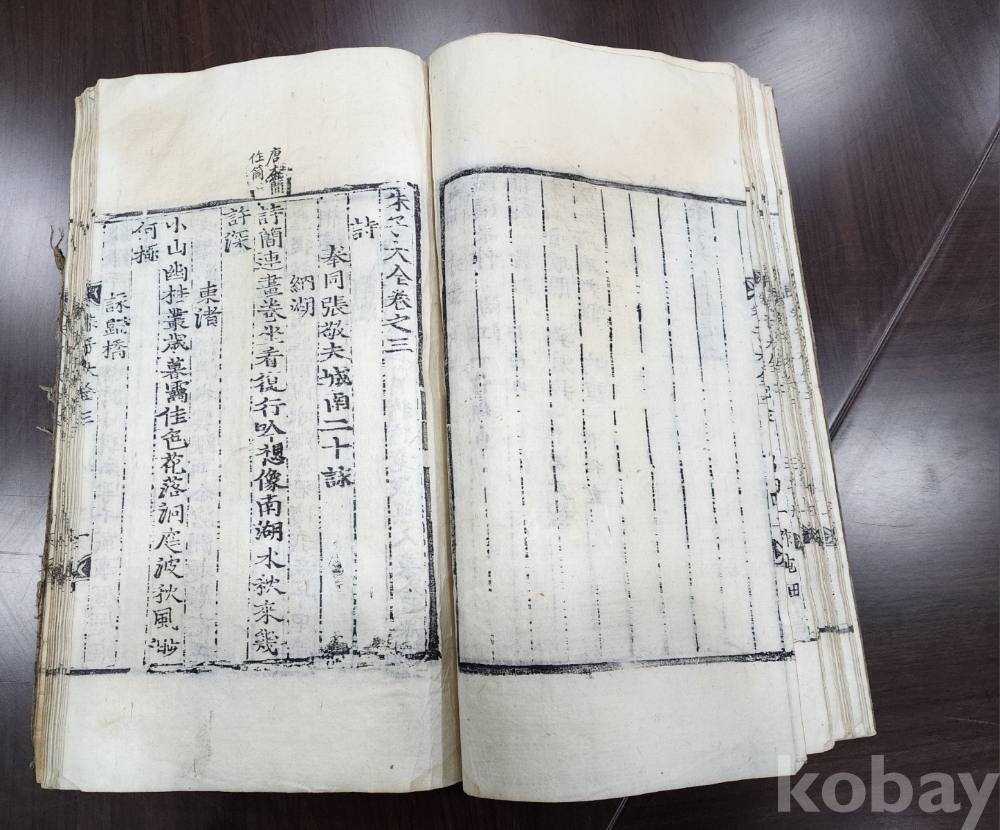 唐本簡
作筒
朱子大全卷之三
詩
奉同張敬夫城南二十詠
納湖
詩簡連畫卷坐看復行吟想像南湖水秋來幾
許深
東渚
小山幽桂叢歲暮靄佳色花落洞庭波秋風渺
何極
詠歸橋
一作屯田
kobay